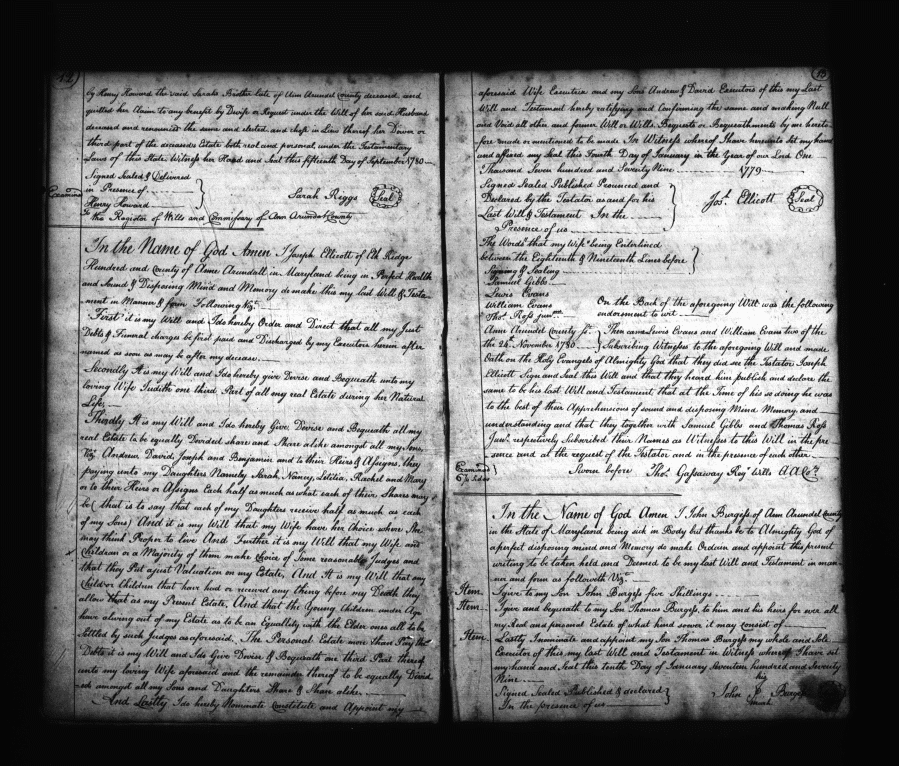 12
by Henry Howard the said Sarahs Brother late of Ann Arundel County deceased and
quitted her Claim to any benefit by Devise or Request under the Will of her said Husband
deceased and renounces the same and elected and chose in Lieu thereof her Dower or
third part of the deceaseds Estate both real and personal, under the Testamentary
Laws of this State. Witness her Hand and Seal this fifteenth Day of September 1780
Signed Sealed & Delivered
in Presence of
Examined
Henry Howard
Sarah Riggs Seal
To the Register of Wills and Commissary of Ann Arundel County
In the Name of God Amen I Joseph Ellicott of Elk Ridge
Hundred and County of Anne Arundall in Maryland being in Perfect Health
and Sound & Disposing Mind and Memory do make this my last Will & Testa
ment in Manner & form Following Vizt.
First it is my Will and I do hereby Order and Direct that all my Just
Debts & Funeral charges be first paid and Discharged by my Executors herein after
named as soon as may be after my decease.
Secondly It is my Will and I do hereby give Devise and Bequeath unto my
loving Wife Judith one third Part of all my real Estate during her Natural
Life
Thirdly It is my Will and I do hereby Give Devise and Bequeath all my
real Estate to be equally Devided share and Share alike amongst all my Sons,
Viz. Andrew David Joseph and Benjamin and to their Heirs & Assigns, they
paying unto my Daughters Namely Sarah, Nancy, Letitia, Rachel and Mary
or to their Heirs or Assigns Each half as much as what each of their Shares may
be (that is to say that each of my Daughters receive half as much as each
of my Sons) And it is my Will that my Wife have her Choice where She
may think Proper to live And Further it is my Will that my Wife and
Children or a Majority of them make choice of Some reasonable Judges and
that they Put a just Valuation on my Estate, And It is my Will that any
Child or Children that have had or received any thing before my Death they
allow that as my Present Estate, And that the Young Children under Age
have aliving out of my Estate as to be an Equallity with the Elder ones all to be
Settled by such Judges as aforesaid, The Personal Estate more than Pay the
Debts it is my Will and I do Give Devise & Bequeath one third Part thereof
unto my loving Wife aforesaid and the remainder thereof to be equally Devid
ed amongst all my Sons and Daughters Share & Share alike.
And Lastly I do hereby Nominate Constitute and Appoint my
13
aforesaid Wife Executrix and my Sons Andrew & David Executors of this my Last
Will and Testament hereby ratifying and Confirming the same and making Null
and Void all other and former Will or Wills Bequests or Bequeathments by me hereto-
fore made or mentioned to be made In Witness whereof I have hereunto set my hand
and affixed my Seal this Fourth Day of January in the Year of our Lord One
Thousand Seven hundred and Seventy Nine 1779
Signed Sealed Published Pronounced and
Declared by the Testator as and for his
Last Will & Testament in the
Presence of us
Jos. Ellicott Seal
The Words that my Wife being Enterlined
between the Eighteenth & Nineteenth Lines before
Signing & Sealing
Samuel Gibbs
Lewis Evans
William Evans
Thos. Ross junr.
On the Back of the aforegoing Will was the following
endorsement to wit
Anne Arundel County sc.
the 24th November 1780
Then came Lewis Evans and William Evans two of the
Subscribing Witnesses to the aforegoing Will and made
Oath on the Holy Evangels of Almighty God that they did see the Testator Joseph
Ellicott Sign and Seal this Will and that they heard him publish and declare the
same to be his last Will and Testament that at the Time of his so doing he was
to the best of their Apprehensions of sound and disposing Mind Memory and
understanding and that they together with Samuel Gibbs and Thomas Ross
Junr. respectively Subscribed their Names as Witnesses to this Will in the pre
sence and at the request of the Testator and in the presence of each other
Examined
Sworn before Thos. Gassaway Regr. Wills A A Coty.
In the Name of God Amen I John Burgess of Ann Arundel County
in the State of Maryland being sick in Body but thanks be to Almighty God of
a perfect disposing mind and Memory do make Ordain and appoint this present
writing to be taken held and Deemed to be my last Will and Testament in man-
ner and form as followeth Viz.
Item. I give to my Son John Burgess five Shillings
Item I give and bequeath to my Son Thomas Burgess, to him and his heirs for ever all
my Real and personal Estate of what kind soever it may consist of
Item Lastly I nominate and appoint my Son Thomas Burgess my whole and Sole
Executor of this my last Will and Testament in Witness whereof I have set
my hand and Seal this Tenth Day of January Seventeen hundred and Seventy
Nine
Signed Sealed Published & declared
In the presence of us
his
John Burgess
mark